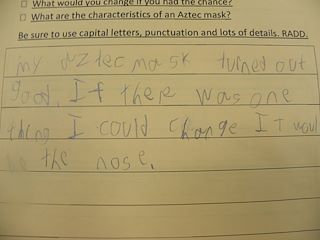 □ What would you change if you had the chance?
□ What are the characteristics of an Aztec mask?
Be sure to use capital letters, punctuation and lots of details. RADD.
my aztec mask turned out
good. If there was one
thing I could change IT woul
be the nose.